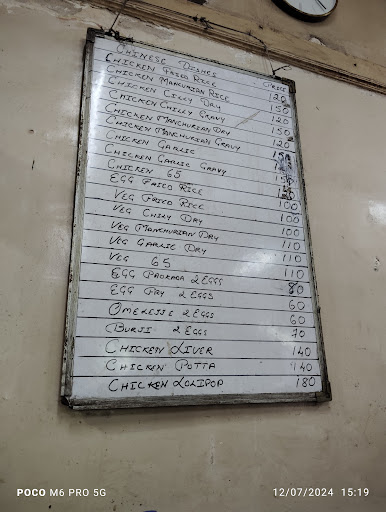 CHINESE DISHES
CHICKEN FRIED RICE 120
CHICKEN MANCURIAN RICE 150
CHICKEN CILLY DAY 120
CHICKEN CHILLY GRAVY 150
CHICKEN MANCHURIAN DAY 120
CHICKEN MANCHURIAN GRAVY
CHICKEN GARLIC
CHICKEN GARLIC GRAVY
CHICKEN 65
EGG FRIED RICE 100
VEG FRIED RICE 100
VEG CHILY DAY 100
VEG MANCHURIAN DAY 110
VEG GARLIC DRY 110
VEG 65 110
EGG PACKADA 2 EGGS 80
EGG FRY 2 EGGS 60
OMELESSE 2 EGGS 60
BURJI 2 EGGS 70
CHICKEN LIVER 140
CHICKEN POTTA 140
CHICKEN LOLIPOP 180
POCO M6 PRO 5G
12/07/2024 15:19